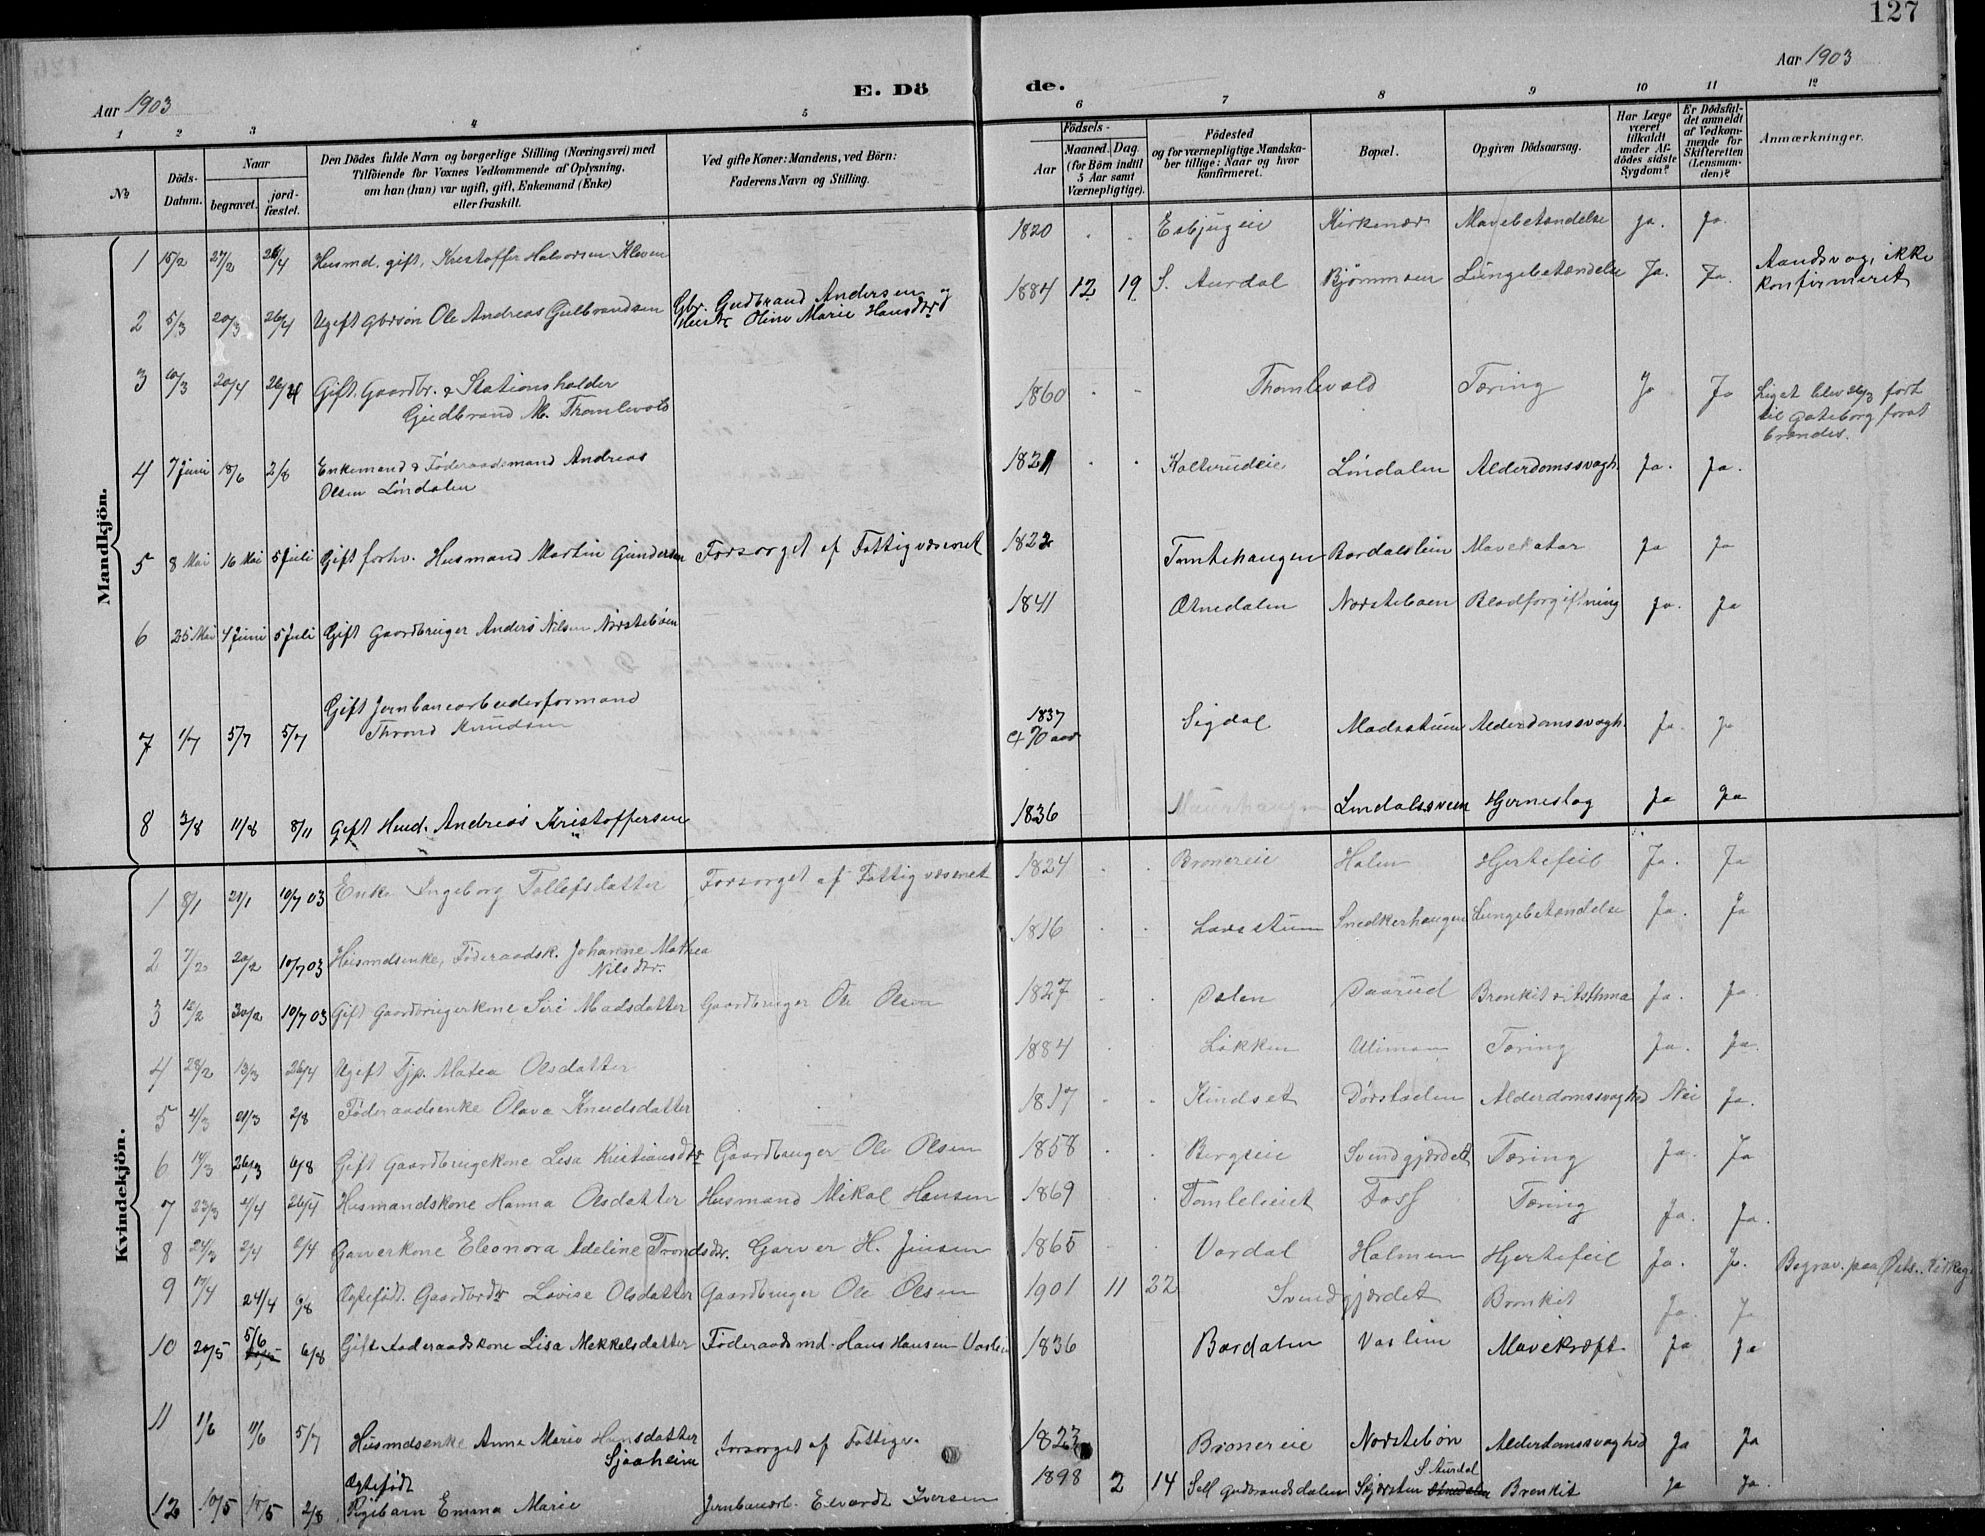 127
Aar 1903
E. Dö
de.
Aar 1903
1 2 3 4 5 6 7 8 9 10 11 12
No
Döds-Datum.
Naar
begravet.
jord-fæstet.
Den Dödes fulde Navn og borgerlige Stilling (Næringsvei) med
Tilföiende for Voxnes Vedkommende af Oplysning,
om han (hun) var ugift, gift, Enkemand (Enke)
eller fraskilt.
Ved gifte Koner: Mandens, ved Börn:
Faderens Navn og Stilling.
Födsels-
Aar
Maaned. Dag.
(for Börn indtil
5 Aar samt
Værnepligtige).
Födested
og for værnepligtige Mandska-
ber tillige: Naar og hvor
konfirmeret.
Bopæl.
Opgiven Dödsaarsag.
Har Læge
været
tilkaldt
under Af-
dödes sidste
Sygdom?
Er Dödsfal-
det anmeldt
af Vedkom-
mende for
Skifteretten
(Lensman-
den)?
Anmærkninger.
Mandkjön.
1 15/2 27/2 26/4 Husmd. gift, Kristoffer Halvorsen Kleven 1820 Esbjugeie Kirkenær Mavebetændelse ja. Ja.
2 5/3 20/3 26/4 Ugift Gbrsön Ole Andreas Gulbrandsen Gbr. Gudbrand Andersen og
Hustr Oline Marie Hansdtr 1884 12 19 S. Aurdal Lungebetændelse Ja. Ja. Aandsvag, ikke
konfirmeret
3 10/3 20/4 26/4 Gift. Gaardbr. & Stationsholder
Gudbrand M. Thomlevold 1860 Thomlevold Tæring Ja Ja Liget blev 26/3 ført
til Gøteborg forat
brændes.
4 7 Juni 18/6 2/8 Enkemand & Føderaadsmand Andreas
Olsen Lindalen 1821 Kolterudeie Lindalen Alderdomssvagh. Ja. Ja.
5 8 Mai 16 Mai 5 Juli Gift forhv. Husmand Martin Gundersen Forsorget af Fattigvæsenet 1822 Tomtehaugen Bardaleslien Mavekatar Ja Ja
6 25 Mai 4 Juni 5 Juli Gift Gaardbruger Anders Nilsen Nørsteböen 1841 Etnedalen Nørsteboen Blodforgiftning Ja. Ja
7 1/7 5/7 5/7 Gift Jernbanearbeiderformand
Thrond Knudsen 1837
70 aar Sigdal Madsstuen Alderdomssvagh. Ja. Ja
8 3/8 11/8 8/11 Gift Husd. Andreas Kristoffersen 1836 Lindalssveen Hjerneslag Ja Ja
Kvindekjön.
1 8/1 21/1 10/7 03 Enke Ingeborg Tollefsdatter Forsorget af Fattigvæsenet 1824 Bronereie Holen Hjertefeil Ja. Ja
2 7/2 20/2 10/7 03 Husmdsenke, Føderaadsk. Johanne Mathea
Nilsdtr. 1816 Larsstuen Snedkerhaugen Lungebetændelse Ja. Ja
3 12/2 20/2 10/7 03 Gift Gaardbrugerkone Siri Madsdatter Gaardbruger Ole Olsen 1827 Dalen Daarud Bronkit & Asthma Ja. Ja
4 28/2 13/3 26/4 Ugift Tjp. Matea Olsdatter 1884 Løkken Ulimoen Tæring Ja. Ja.
5 4/3 21/3 2/8 Føderaadsenke Olava Knudsdatter 1817 Kindset Dørstadlen Alderdomssvaghed Nei Ja.
6 14/3 26/3 6/8 Gift Gaardbrugekone Lisa Kristiansdtr Gaardbruger Ole Olsen 1858 Bergseie Svendgjærdet Tæring Ja. Ja
7 23/3 4/4 26/4 Husmandskone Hanna Olsdatter Husmand Mikal Hansen 1869 Tomleleiet Foss Tæring Ja. Ja.
8 24/3 2/4 2/4 Garverkone Eleonora Adeline Trondsdtr. Garver H. Jensen 1865 Vardal Holmen Hjertefeil Ja. Ja. Begrav. paa
9 17/4 24/4 6/8 Ægtefødt. Gaardbrdtr Lovise Olsdatter Gaardbruger Ole Olsen 1901 11 22 Svendgjærdet Bronkit Ja. Ja
10 20/5 5/6 6/8 Gift Føderaadskone Lisa Mekkelsdatter Føderaadsmd. Hans Hansen Vaslien 1836 Bardalen Vaslien Mavekræft Ja Ja
11 1/6 11/6 5/7 Husmdsenke Anne Marie Hansdatter
Sjaaheim Forsorget af Fattigv. 1823 Bronereie Nørstebøn Alderdomssvaghed Ja Ja
12 10/5 15/5 2/8 Ægtefødt
Pigebarn Emma Marie Jernbanearb. Edvardt Iversen 1898 2 14 Sell Gudbrandsdalen S Aurdal Bronkit Ja Ja.